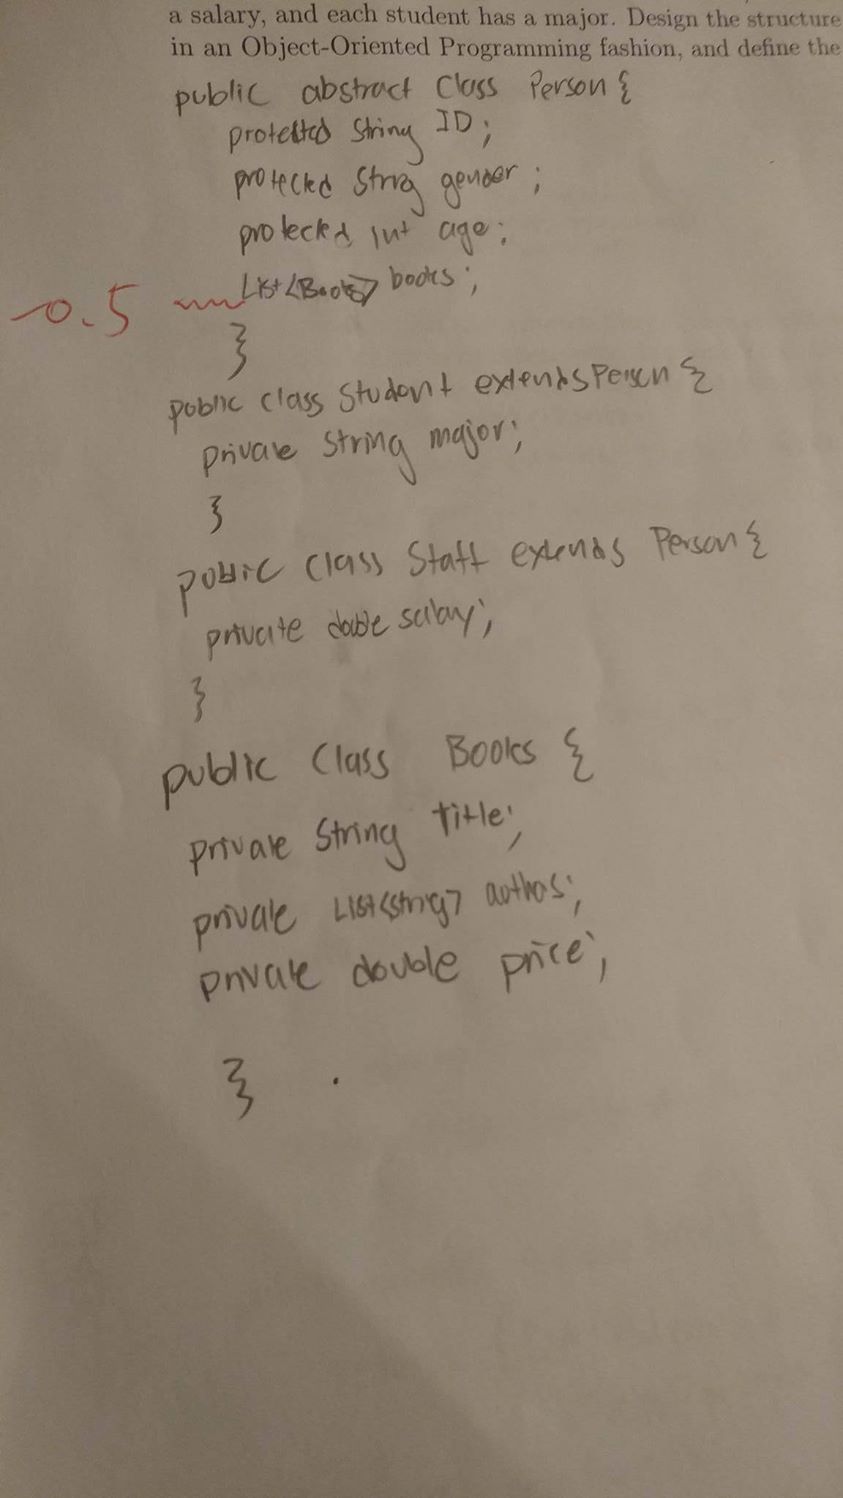 a salary, and each student has a major. Design the structure
in an Object-Oriented Programming fashion, and define the
public abstract Class Person {
protected String ID;
protected String gender;
protected int age;
-0.5 List<Books> books;
}
public class Student extends Person {
private String major;
}
public class Staff extends Person {
private double salary;
}
public Class Books {
private String Title;
private List<String> authos;
private double price;
}